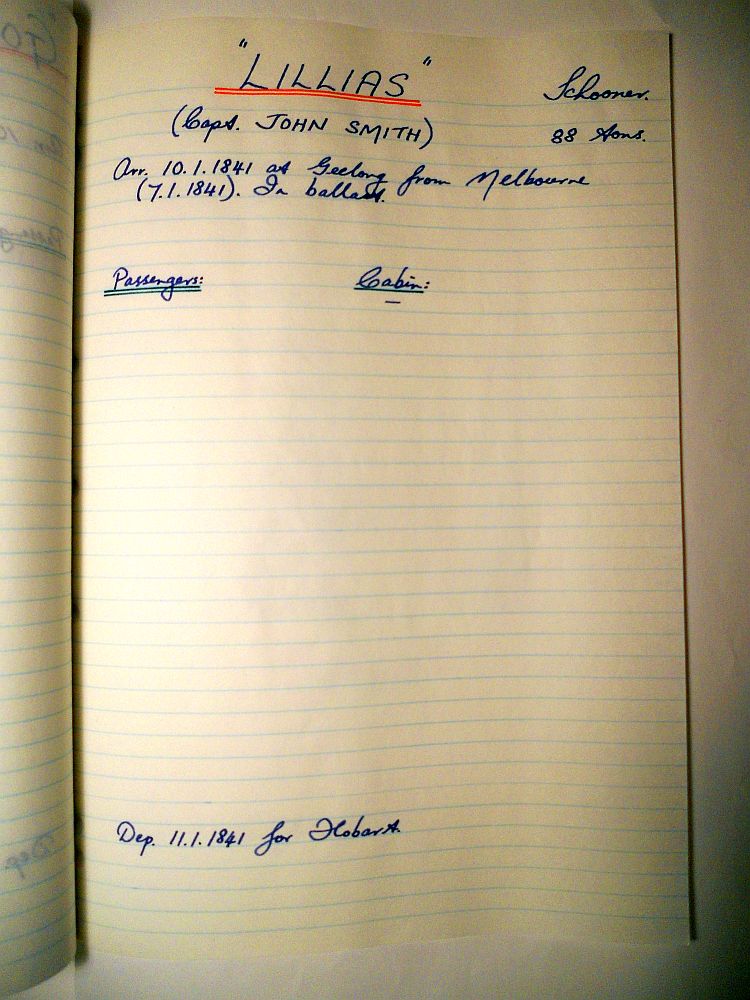 "LILLIAS"
Schooner.
(Capt. JOHN SMITH)
88 tons.
Arr. 10.1.1841 at Geelong from Melbourne
(7.1.1841). In ballast.
Passengers: Cabin:
—
Dep. 11.1.1841 for Hobart.